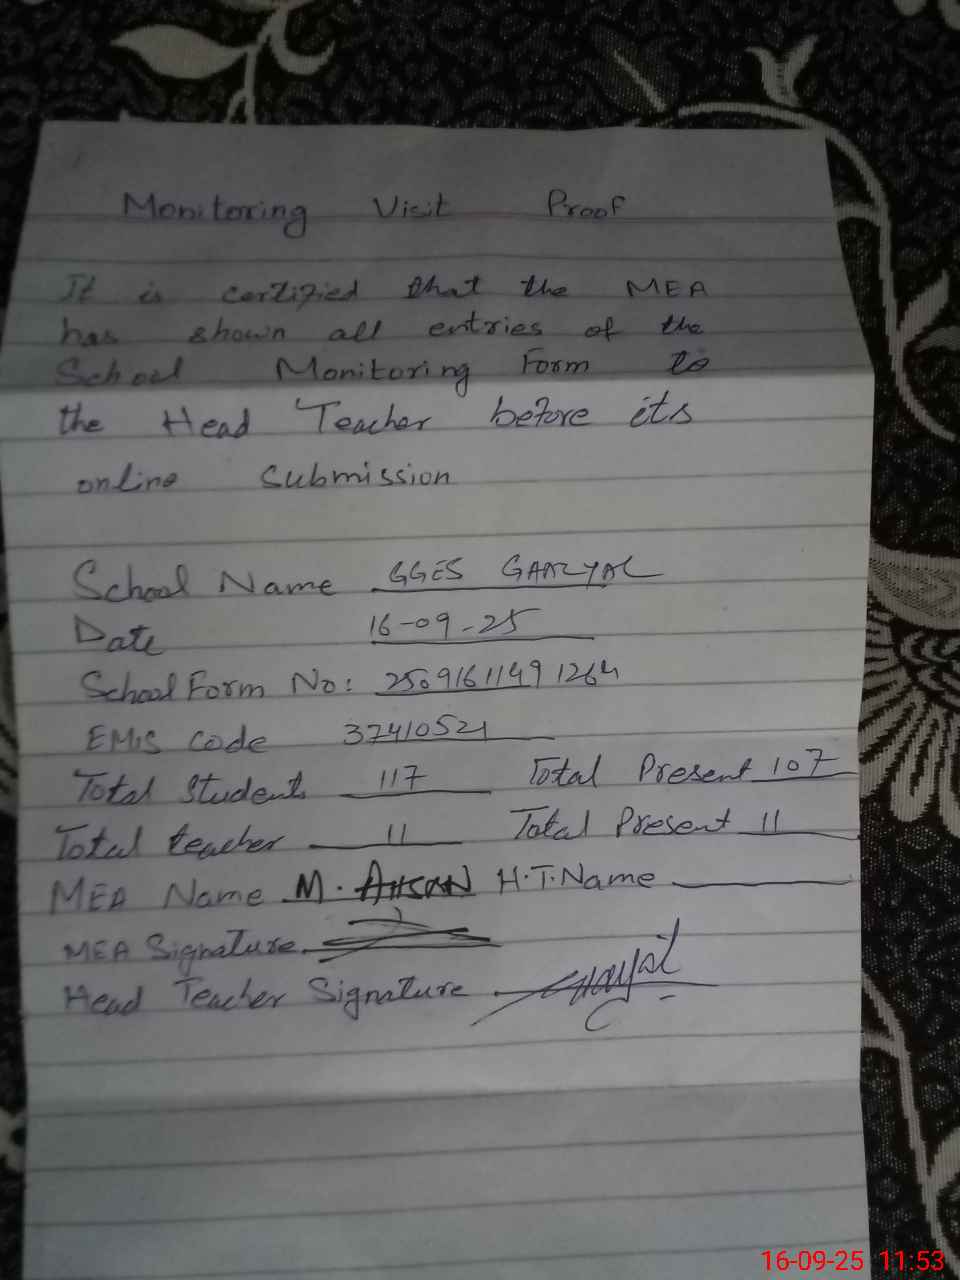 Monitoring Visit Proof
It is certified that the MEA
has shown all entries of the
School Monitoring Form to
the Head Teacher before its
online Submission
School Name GGES GARYAL
Date 16-09-25
School Form No: 2509161149 1264
EMIS Code 37410521
Total Students 117 Total Present 107
Total teacher 11 Total Present 11
MEA Name M. AHSAN H.T.Name
MEA Signature
Head Teacher Signature
16-09-25 11:53